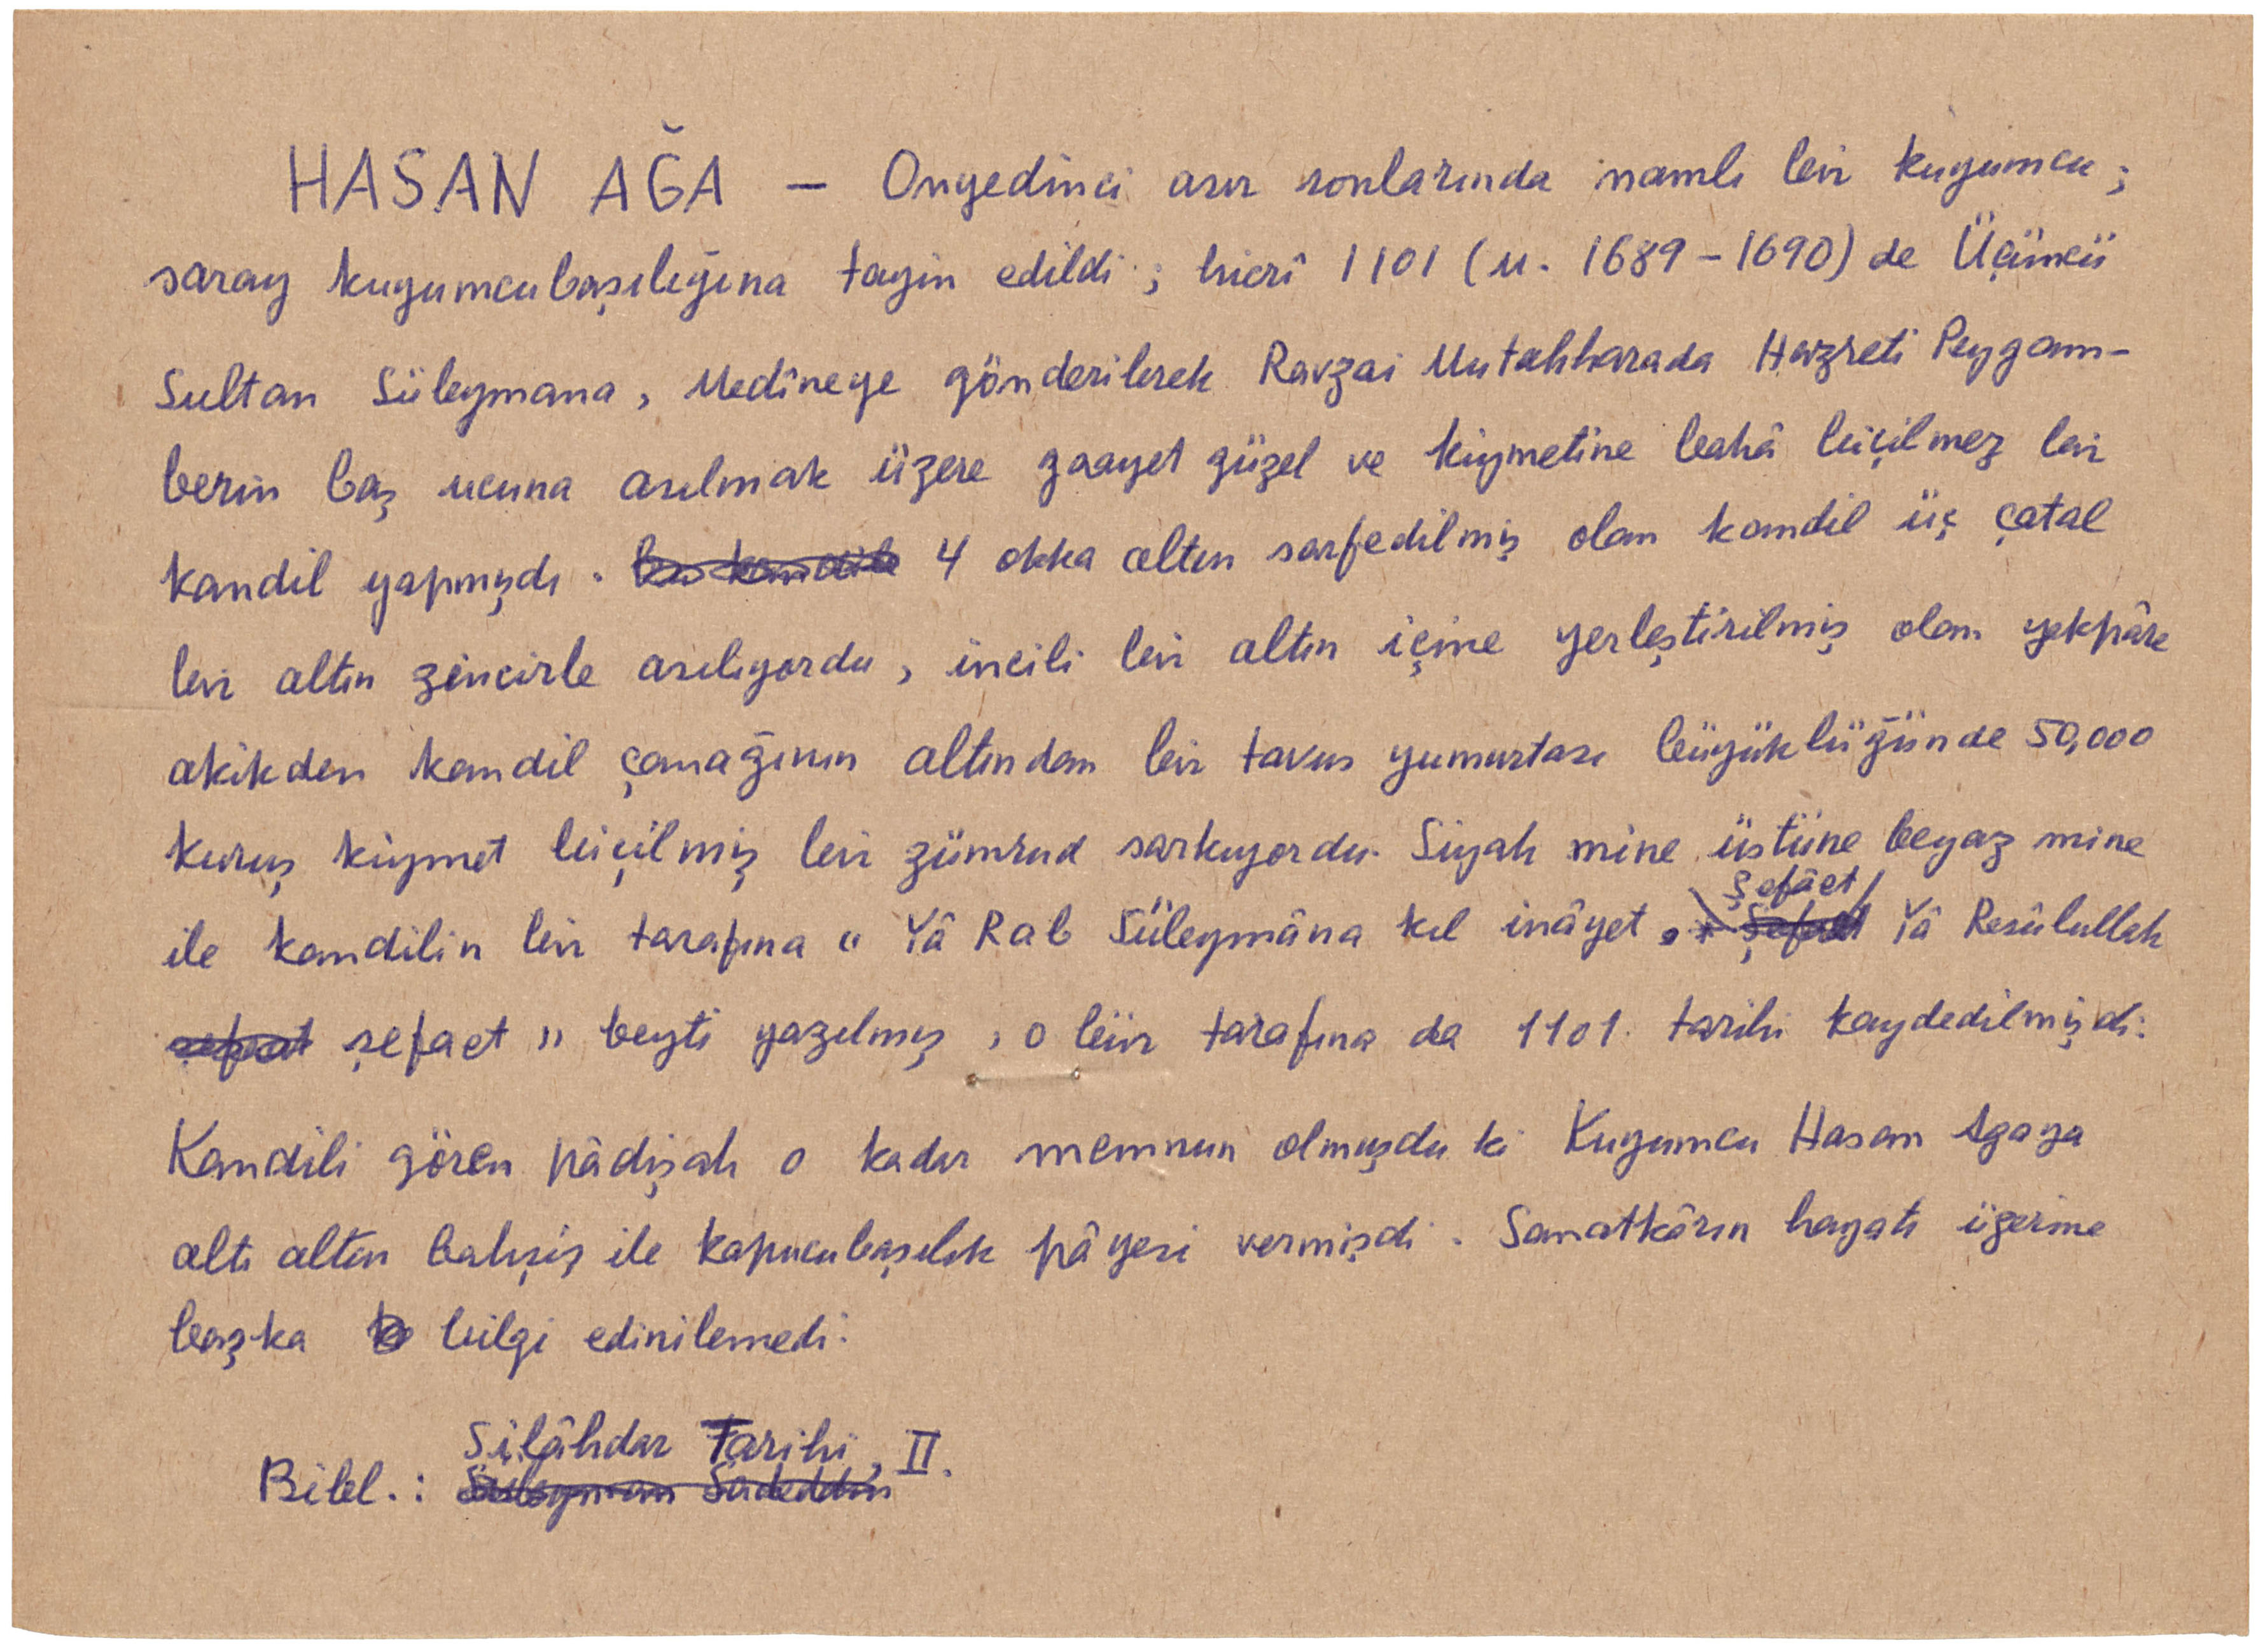 HASAN AĞA — Onyedinci asır sonlarında namlı bir kuyumcu;
saray kuyumcubaşılığına tayin edildi; hicrî 1101 (M. 1689-1690) de Üçüncü
Sultan Süleymana, Medîneye gönderilerek Ravzai Mutahharada Hazreti Peygam-
berin baş ucuna asılmak üzere gaayet güzel ve kiymetine bahâ biçilmez bir
kandil yapmışdı. bu kandile 4 okka altın sarfedilmiş olan kandil üç çatal
bir altın zincirle asılıyordu, incili bir altın içine yerleştirilmiş olan yekpâre
akikden kandil çanağının altından bir tavus yumurtası büyüklüğünde 50,000
kuruş kıymet biçilmiş bir zümrud sarkıyordu. Siyah mine üstüne beyaz mine
şefâet
ile kandilin bir tarafına "Yâ Rab Süleymâna kıl inâyet, şefaet Yâ Resûlullah
şefaat şefaet" beyti yazılmış, o bir tarafına da 1101. tarihi kaydedilmişdi.
Kandili gören pâdişah o kadar memnun olmuşdu ki Kuyumcu Hasan Agaya
altı altın bahşiş ile kapucubaşılık pâyesi vermişdi. Sanatkârın hayatı üzerine
başka bilgi edinilemedi.
Silâhdar Tarihi, II.
Bibl.: Süleyman Sâdeddin